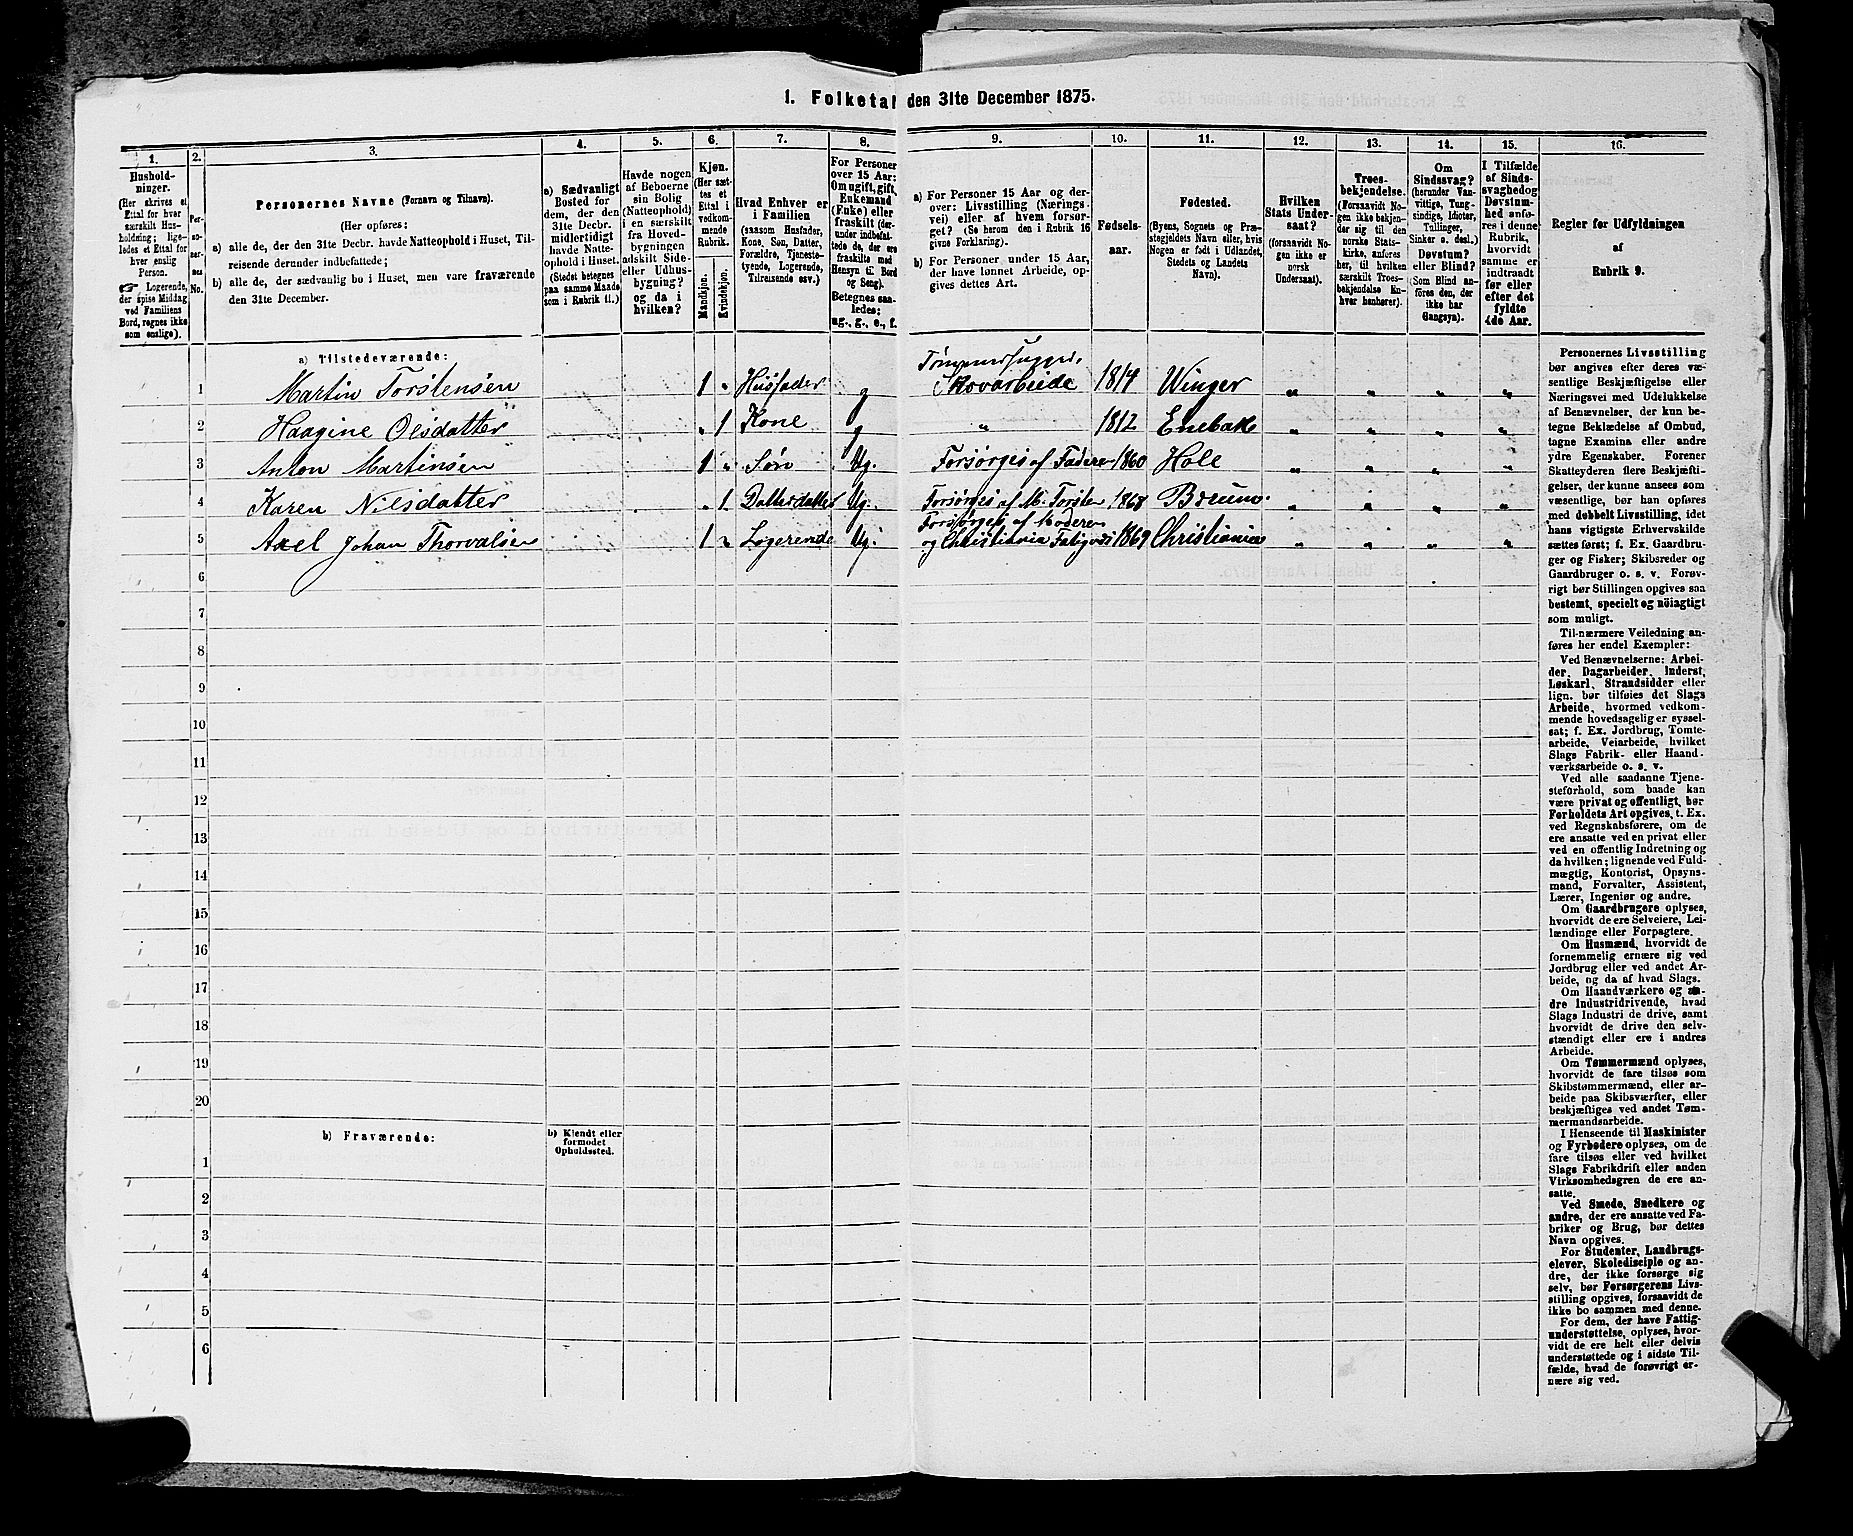 1. Folketal den 31te December 1875.
1.
Hushold-
ninger.
(Her skrives et
Ettal for hver
særskilt Hus-
holdning; lige-
ledes et Ettal for
hver enslig
Person.
☞ Logerende,
der spise Middag
ved Familiens
Bord, regnes ikke
som enslige).
2.
Per-
so-
ner-
nes
No.
3.
Personernes Navne (Fornavn og Tilnavn).
(Her opføres:
a) alle de, der den 31te Decbr. havde Natteophold i Huset, Til-
reisende derunder indbefattede;
b) alle de, der sædvanlig bo i Huset, men vare fraværende
den 31te December.
4.
a) Sædvanligt
Bosted for
dem, der den
31te Decbr.
midlertidigt
havde Natte-
ophold i Huset.
(Stedet betegnes
paa samme Maade
som i Rubrik 11.)
5.
Havde nogen
af Beboerne
sin Bolig
(Natteophold)
i en særskilt
fra Hoved-
bygningen
adskilt Side-
eller Udhus-
bygning?
og da i
hvilken?
6.
Kjøn.
(Her sæt-
tes et
Ettal i
vedkom-
mende
Rubrik.
Mandkjøn.
Kvindekjøn.
7.
Hvad Enhver er
i Familien
(saasom Husfader,
Kone, Søn, Datter,
Forældre, Tjeneste-
tyende, Logerende,
Tilreisende osv.)
8.
For Personer
over 15 Aar:
Om ugift, gift,
Enkemand
(Enke) eller
fraskilt (der-
under indbefat-
tede de, der ere
fraskilte med
Hensyn til Bord
og Seng).
Betegnes saa-
ledes:
ug., g., e., f.
9.
a) For Personer 15 Aar og der-
over: Livsstilling (Nærings-
vei) eller af hvem forsør-
get? (Se herom den i Rubrik 16
givne Forklaring).
b) For Personer under 15 Aar,
der have lønnet Arbeide, op-
gives dettes Art.
10.
Fødsels-
aar.
11.
Fødested.
(Byens, Sognets og Præ-
stegjeldets Navn eller, hvis
Nogen er født i Udlandet,
Stedets og Landets
Navn).
12.
Hvilken
Stats Under-
saat?
(forsaavidt No-
gen ikke er
norsk
Undersaat).
13.
Troes-
bekjendelse.
(Forsaavidt No-
gen ikke bekjen-
der sig til den
norske Stats-
kirke, anføres
her, til hvilken
særskilt Troes-
bekjendelse En-
hver henhører).
14.
Om
Sindssvag?
(herunder Van-
vittige, Tung-
sindige, Idioter,
Tullinger,
Sinker o. desl.)
Døvstum?
eller Blind?
(Som Blind an-
føres den, der
ikke har
Gangsyn).
15.
I Tilfælde
af Sinds-
svaghed og
Døvstum-
hed anfø-
res i denne
Rubrik,
hvorvidt
samme er
indtraadt
før eller
efter det
fyldte
4de Aar.
16.
Regler for Udfyldningen
af
Rubrik 9.
a) Tilstedeværende:
1 Martin Torstensen 1 „ Husfader g Tømmerhugger, Skovarbeide 1814 Winger „ „ „ „
2 Haagine Olsdatter „ 1 Kone g „ 1812 Enebak „ „ „ „
3 Anton Martinsen 1 „ Søn Ug. Forsørges af Faderen 1860 Hole „ „ „ „
4 Karen Nilsdatter „ 1 Datterdatter Ug. Forsørges af M. Torsten. 1868 Bærum. „ „ „ „
5 Axel Johan Thorvalsen 1 „ Logerende Ug. Forsørges af Moderen og Christiania Fatigvæs 1869 Christiania „ „ „ „
6
7
8
9
10
11
12
13
14
15
16
17
18
19
20
b) Fraværende:
b) Kjendt eller
formodet
Opholdssted.
1
2
3
4
5
6
Personernes Livsstilling
bør angives efter deres væ-
sentlige Beskjæftigelse eller
Næringsvei med Udelukkelse
af Benævnelser, der kun be-
tegne Beklædelse af Ombud,
tagne Examina eller andre
ydre Egenskaber. Forener
Skatteyderen flere Beskjæfti-
gelser, der kunne ansees som
væsentlige, bør han opføres
med dobbelt Livsstilling, idet
hans vigtigste Erhvervskilde
sættes først; f. Ex. Gaardbru-
ger og Fisker; Skibsreder og
Gaardbruger o. s. v. Forøv-
rigt bør Stillingen opgives saa
bestemt, specielt og nöiagtigt
som muligt.
Til nærmere Veiledning an-
føres her endel Exempler:
Ved Benævnelserne: Arbei-
der, Dagarbeider, Inderst,
Løskarl, Strandsidder eller
lign. bør tilføies det Slags
Arbeide, hvormed vedkom-
mende hovedsagelig er syssel-
sat; f. Ex. Jordbrug, Tomte-
arbeide, Veiarbeide, hvilket
Slags Fabrik- eller Haand-
værksarbeide o. s. v.
Ved alle saadanne Tjene-
steforhold, som baade kan
være privat og offentligt, bør
Forholdets Art opgives, t. Ex.
ved Regnskabsførere, om de
ere ansatte ved en privat eller
ved en offentlig Indretning og
da hvilken; lignende ved Fuld-
mægtig, Kontorist, Opsyns-
mand, Forvalter, Assistent,
Lærer, Ingeniør og andre.
Om Gaardbrugere oplyses,
hvorvidt de ere Selveiere, Lei-
lændinge eller Forpagtere.
Om Husmænd, hvorvidt de
fornemmelig ernære sig ved
Jordbrug eller ved andet Ar-
beide, og da af hvad Slags.
Om Haandværkere og an-
dre Industridrivende, hvad
Slags Industri de drive, samt
hvorvidt de drive den selv-
stændigt eller ere i andres
Arbeide.
Om Tømmermænd oplyses,
hvorvidt de fare tilsøs som
Skibstømmermænd, eller ar-
beide paa Skibsværfter, eller
beskjæftiges ved andet Tøm-
mermandsarbeide.
I Henseende til Maskinister
og Fyrbødere oplyses, om de
fare tilsøs eller ved hvilket
Slags Fabrikdrift eller anden
Virksomhedsgren de ere an-
satte.
Ved Smede, Snedkere og
andre, der ere ansatte ved Fa-
briker og Brug, bør dettes
Navn opgives.
For Studenter, Landbrugs-
elever, Skoledisciple og an-
dre, der ikke forsørge sig
selv, bør Forsørgerens Livs-
stilling opgives, forsaavidt de
ikke bo sammen med denne.
For dem, der have Fattig-
understøttelse, oplyses, hvor-
vidt de ere helt eller delvis
understøttede og i sidste Til-
fælde, hvad de forøvrigt er-
nære sig ved.